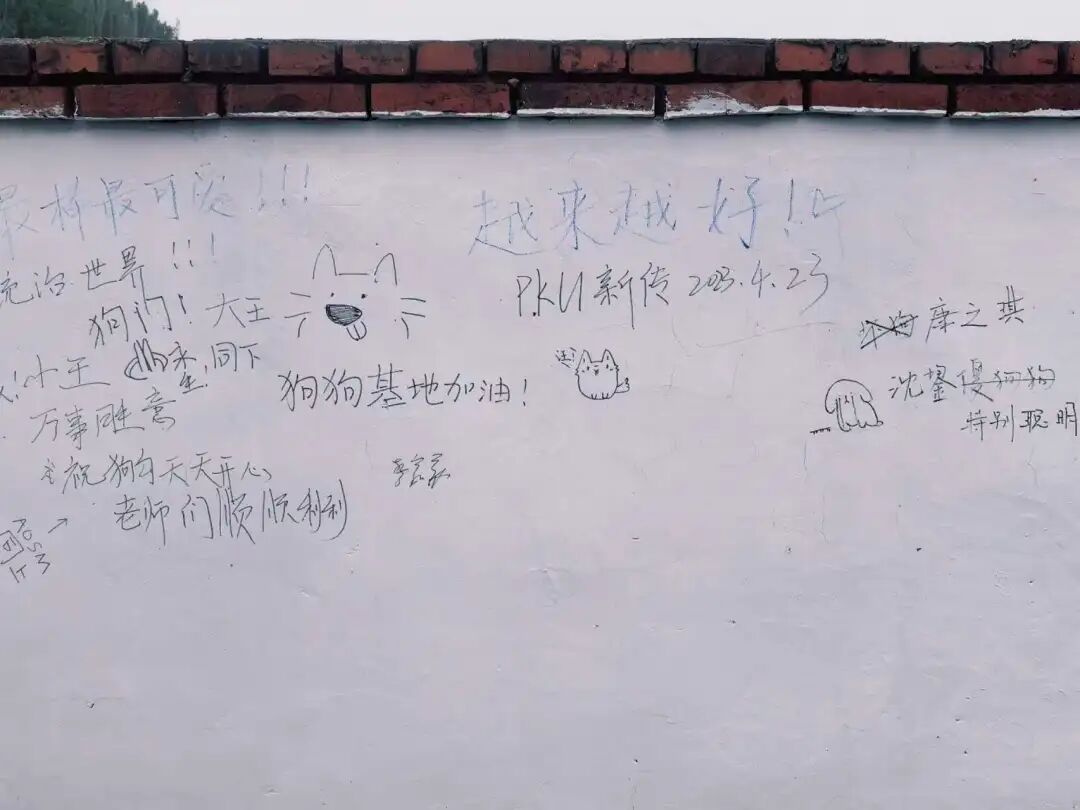 最棒最可爱!!!
越来越好!
统治世界!!!
狗门! 大王
P.K.U 新传 2023.4.23
康之淇
小王
同下
狗狗基地加油!
汪!
沈鋆傻狗狗
特别聪明
万事胜意
祝狗勾天天开心
老师们顺顺利利